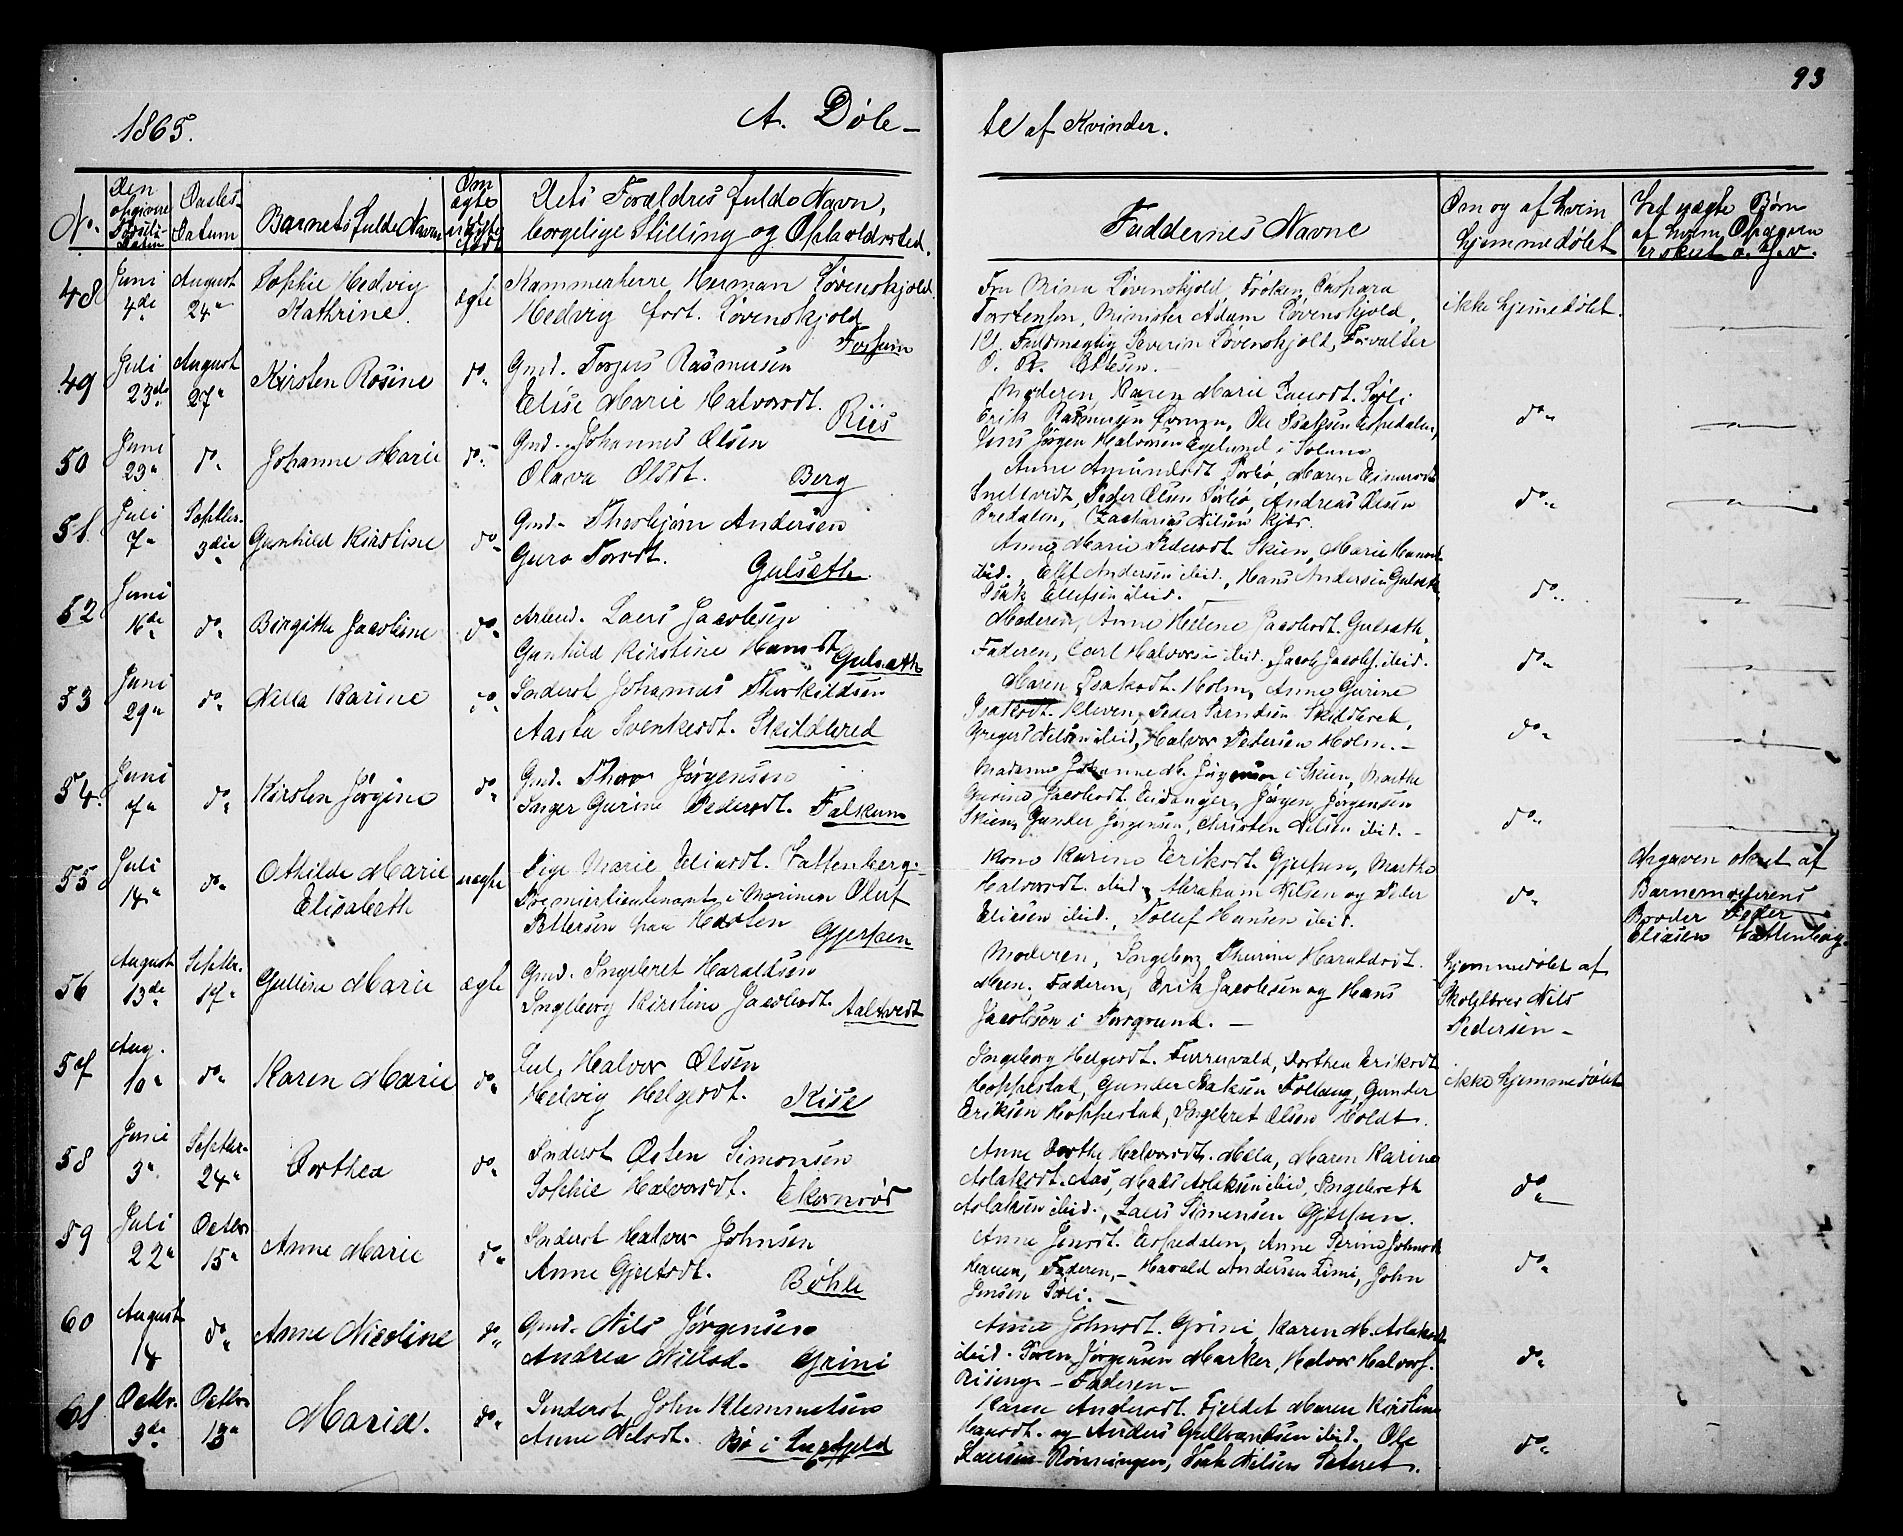 93
1865.
A. Døbte af Kvinder.
No.
Den opgivne Fødsels Datum
Daabs-Datum
Barnets fulde Navn
Om ægte el. uægte født
Dets Forældres fulde Navn, borgelige Stilling og Opholdssted.
Faddernes Navne
Om og af hvem hjemmedøbt
48 Juni 4de August 24. Sophie Hedvig Kathrine. ægte
Kammerherre Herman Løvenskjold
Hedvig født Løvenskjold
Fossum
Fru Mina Løvenskjold, Frøken Caspara
Torstensen, Minister Adam Løvenskjold,
Fuldmægtig Severin Løvenskjold, Forvalter
ikke hjemmedøbt.
49 Juli 23de August 27. Kirsten Rosine do.
Gmd. Torjus Rasmusen
Elise Marie Halvorsdt.
Riis
Moderen, Karen Marie Larsdt.
Erik Rasmusen, Ole Isaksen Espedalen,
Jens Jørgen Halvorsen
do.
50 Juni 23. do. Johanne Marie do.
Gmd. Johannes Olsen
Olava Olsdt. Berg
Anne Amundsdt. Maren
Peder Olsen, Andreas Olsen
Bredalen, Zacharias Nilsen Kjær.
do.
51. Juli 7. Septbr. 3die Gunhild Kirstine do.
Gmd. Thorbjørn Andersen
Guro Torsdt. Gulseth.
Anne Marie Pedersdt. Skien, Marie Hansdt.
ibid., Ellef Andersen ibid., Hans Andersen Gulseth,
Isak Ellefsen ibid.
do.
52 Juni 16de do. Birgitte Jacobine do.
Arbmd. Lars Jacobsen
Gunhild Kirstine Hansdt Gulseth
Moderen, Anne Helene Jacobsdt. Gulseth.
Faderen, Carl Halvorsen ibid. Jacob Jacobs. ibid.
do.
53 Juni 29. do. Karine do.
Inderst Johannes Thorkildsen
Aasta Svenkesdt. Skildbred
Maren Isaksdt. Holm, Anne Gurine
Isaksdt. Kleven, Peder
Gregert Nilsen ibid, Halvor Pedersen Holm.
do.
54. Juni 7. do. Kirsten Jørgine do.
Gmd. Thor Jørgensen
Inger Gurine Pedersdt. Falskum
Madame Johanne M. Jørgensen i Skien, Marthe
Gurine Jacobsdt. Eidanger, Jørgen Jørgensen
Skien, Gunder Jørgensen, Christen Nilsen ibid.
do.
55 Juli 14. do. Othilde Marie Elisabeth uægte
Pige Marie Eliasdt. Vattenberg,
Premierlieutenant i Marinen Oluf
Pettersen paa Horten Gjerpen
Kone Karine Eriksdt. Gjerpen, Marthe
Halvorsdt. ibid. Abraham Nilsen og Peder
Eliasen ibid., Tollef Hansen ibid.
do.
Opgaven skret af
Barnemoderens
Broder Peder
Eliasen Vattenberg.
56 August 13de Septbr. 17. Gulline Marie ægte
Gmd. Ingebret Haraldsen
Ingeborg Kirstine Jacobsdt. Aaltvedt
Moderen, Ingeborg Thurine Haraldsdt.
Meen, Faderen, Erik Jacobsen og Hans
Jacobsen i Porsgrund.
hjemmedøbt af
Skolelærer Nils
Pedersen
57 Aug. 10. do. Karen Marie do.
Halvor Olsen
Hedvig Helgesdt. Kise
Ingeborg Helgesdt. Furruvald, Dorthea Eriksdt
Hoppestad, Gunder Isaksen Follaug, Gunder
Eriksen Hoppestad, Ingebret Olsen Holdt.
ikke hjemmedøbt
58 Juni 3. Septbr. 24. Dorthea do.
Inderst Østen Simonsen
Sophie Halvorsdt. Ekornrød
Anne Dorthe Halvorsdt. Mæla, Maren Karine
Aslaksdt. Aas, Mads Aslaksen ibid, Ingebreth
Aslaksen ibid., Lars Simensen Gjerpen.
do.
59 Juli 22. Octbr. 15. Anne Marie do.
Inderst Halvor Johnsen
Anne Gjertsdt. Bøhle
Anne Jensdt. Espedalen, Anne Serine Johnsdt
Hauen, Faderen, Harald Andersen Limi, John
Jensen
do.
60 August 14 do. Anne Nicoline do.
Gmd. Nils Jørgensen
Andrea Nilsd. Grini
Anne Johnsdt. Grini, Karen M. Aslaksdt
ibid. Søren Jørgensen Marker, Halvor Halvors.
Rising, Faderen
do.
61 Octbr. 3de Octbr. 15. Maria. do.
Inderst John Klemmetsen
Anne Nilsdt. Bø i Luxefjeld
Karen Andersdt. Fjeldet Maren Kirstine
Hansdt. og Anders Gulbrandsen ibid. Ole
Larsen Rønningen, Isak Nilsen Sæteret.
do.